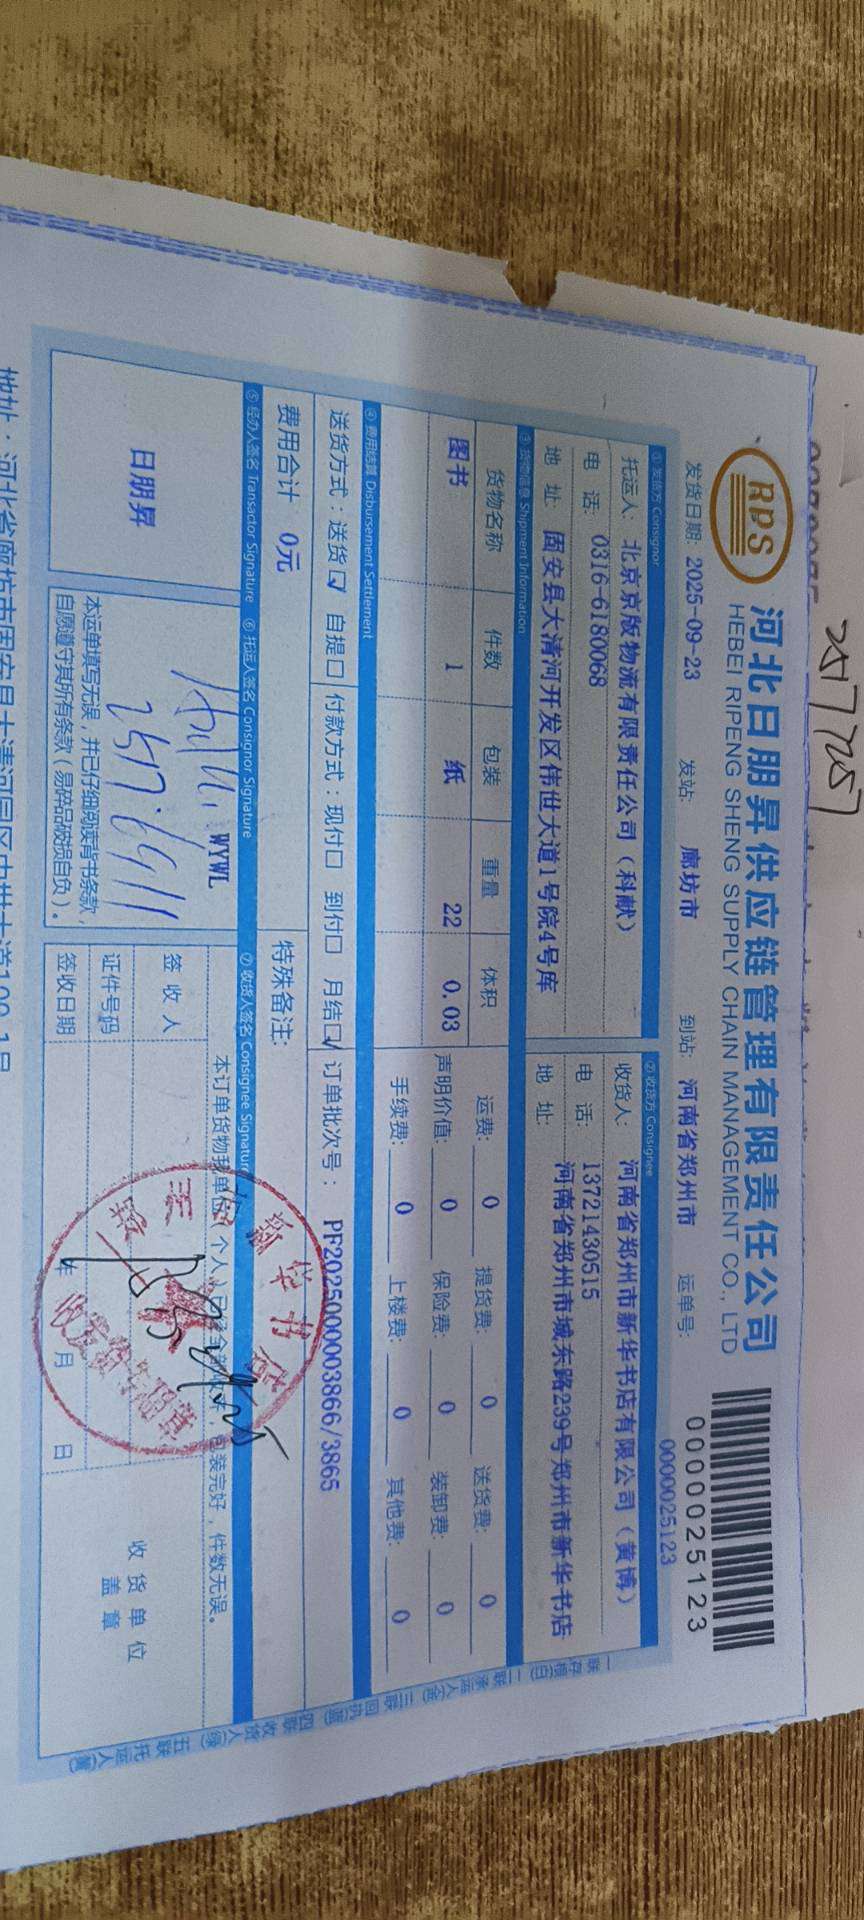 257257
RPS
河北日朋昇供应链管理有限责任公司
HEBEI RIPENG SHENG SUPPLY CHAIN MANAGEMENT CO., LTD
0000025123
发货日期: 2025-09-23 发站: 廊坊市 到站: 河南省郑州市 运单号: 0000025123
① 发货方 Consignor ② 收货方 Consignee
托运人: 北京京版物流有限责任公司（科献） 收货人: 河南省郑州市新华书店有限公司（黄博）
电 话: 0316-6180068 电 话: 13721430515
地 址: 固安县大清河开发区伟世大道1号院4号库 地 址: 河南省郑州市城东路239号郑州市新华书店
③ 货物信息 Shipment Information
货物名称 件数 包装 重量 体积 运费: 0 提货费: 0 送货费: 0
图书 1 纸 22 0.03 声明价值: 0 保险费: 0 装卸费: 0
手续费: 0 上楼费: 0 其他费: 0
④ 费用结算 Disbursement Settlement
送货方式：送货☑ 自提口 付款方式：现付口 到付口 月结☑ 订单批次号： PF2025000003866/3865
费用合计 0元 特殊备注:
⑤ 经办人签名 Transactor Signature ⑥ 托运人签名 Consignor Signature ⑦ 收货人签名 Consignee Signature
日朋昇
WYWL
本运单填写无误，并已仔细阅读背书条款，
自愿遵守其所有条款（易碎品破损自负）。
本订单货物我单位（个人）已 包装完好，件数无误。
签收人
证件号码
签收日期 年 月 日
收货单位
盖章
新华书店
收发货专用章
一联存根(白) 二联承运人(金) 三联回执(蓝) 四联收货人(绿) 五联托运人(黄)
地址：河北省廊坊市固安县大清河园区